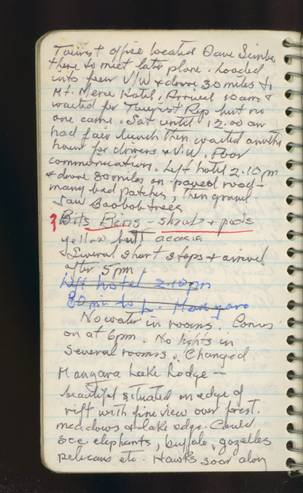 Tourist office located Dave Simba
there to meet later plane. Loaded
into four V/W & drove 30 miles to
Mt. Meru Hotel. Arrived 10 am &
waited for Tourist Rep but no
one came. Sat until 12.00 an
had fair lunch then waited another
hour for drivers & V.W. Poor
communication. Left hotel 2.10 pm
& drove 80 miles on paved road -
many bad patches, then gravel
Saw Baobab trees
? Bits Bens - shrub & pods
yellow acacia
Several short stops & arrived
after 5 pm
Left hotel 2.10 pm
80 mi to L. Manyara
No water in rooms. Comes
on at 6 pm. No lights in
several rooms. Changed
Manyara Lake Lodge -
beautiful situated on edge of
rift with fine view over forest.
meadows & lake edge. Could
see elephants, buffalo, gazelles
pelicans etc. Hawks soar along